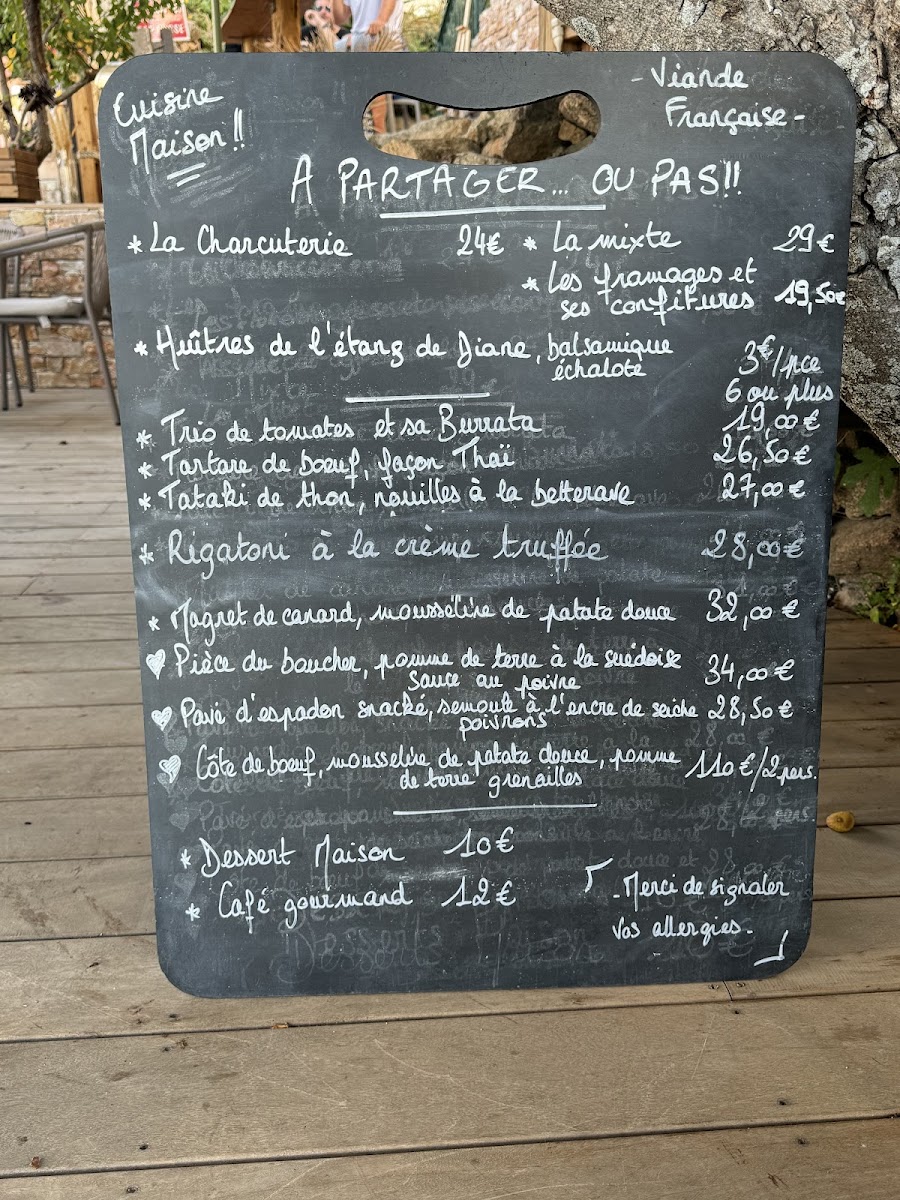 Cuisine
Maison!!
- Viande
Française -
A PARTAGER... OU PAS!!
* La Charcuterie 24€
* La mixte 29€
* Les fromages et
ses confitures 19,50€
* Huîtres de l'étang de Diane, balsamique
échalote
3€/pce
6 ou plus
* Trio de tomates et sa Burrata 19,00€
* Tartare de bœuf, façon Thaï 26,50€
* Tataki de thon, nouilles à la betterave 27,00€
* Rigatoni à la crème truffée 28,00€
* Magret de canard, mousseline de patate douce 32,00€
Pièce du boucher, pomme de terre à la suédoise
sauce au poivre 34,00€
Pavé d'espadon snacké, semoule à l'encre de seiche 28,50€
poivrons
Côte de bœuf, mousseline de patate douce, pomme
de terre grenailles 110€/2 pers.
* Dessert Maison 10€
* Café gourmand 12€
- Merci de signaler
vos allergies -